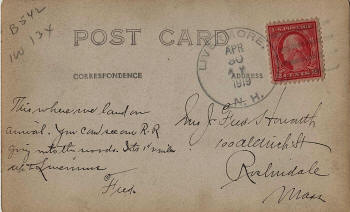 B542
POST CARD
CORRESPONDENCE
ADDRESS
LIVERMORE,
APR
30
1919
N.H.
This where we land on
arrival. You can see our R-R
going into the woods. Its 1 1/2 miles
to Livermore
Fred
Mrs J. Fred Howarth
100 Aldrich St
Roslindale
Mass